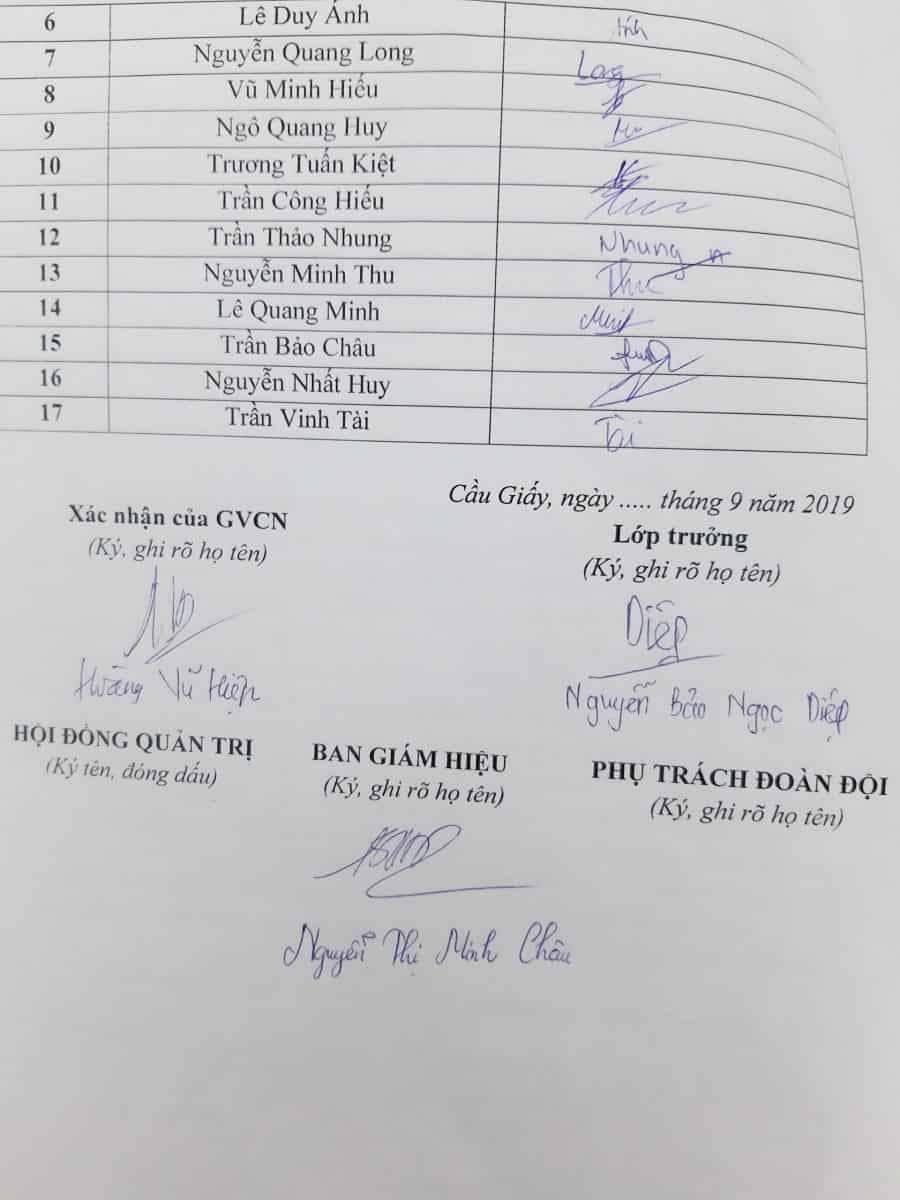 6 Lê Duy Ánh
7 Nguyễn Quang Long Long
8 Vũ Minh Hiếu
9 Ngô Quang Huy
10 Trương Tuấn Kiệt
11 Trần Công Hiếu
12 Trần Thảo Nhung Nhung
13 Nguyễn Minh Thu Thu
14 Lê Quang Minh
15 Trần Bảo Châu
16 Nguyễn Nhất Huy
17 Trần Vinh Tài Tài
Cầu Giấy, ngày ..... tháng 9 năm 2019
Xác nhận của GVCN
(Ký, ghi rõ họ tên)
Hoàng Vũ Hiệp
Lớp trưởng
(Ký, ghi rõ họ tên)
Diệp
Nguyễn Bảo Ngọc Diệp
HỘI ĐỒNG QUẢN TRỊ
(Ký tên, đóng dấu)
BAN GIÁM HIỆU
(Ký, ghi rõ họ tên)
Nguyễn Thị Minh Châu
PHỤ TRÁCH ĐOÀN ĐỘI
(Ký, ghi rõ họ tên)